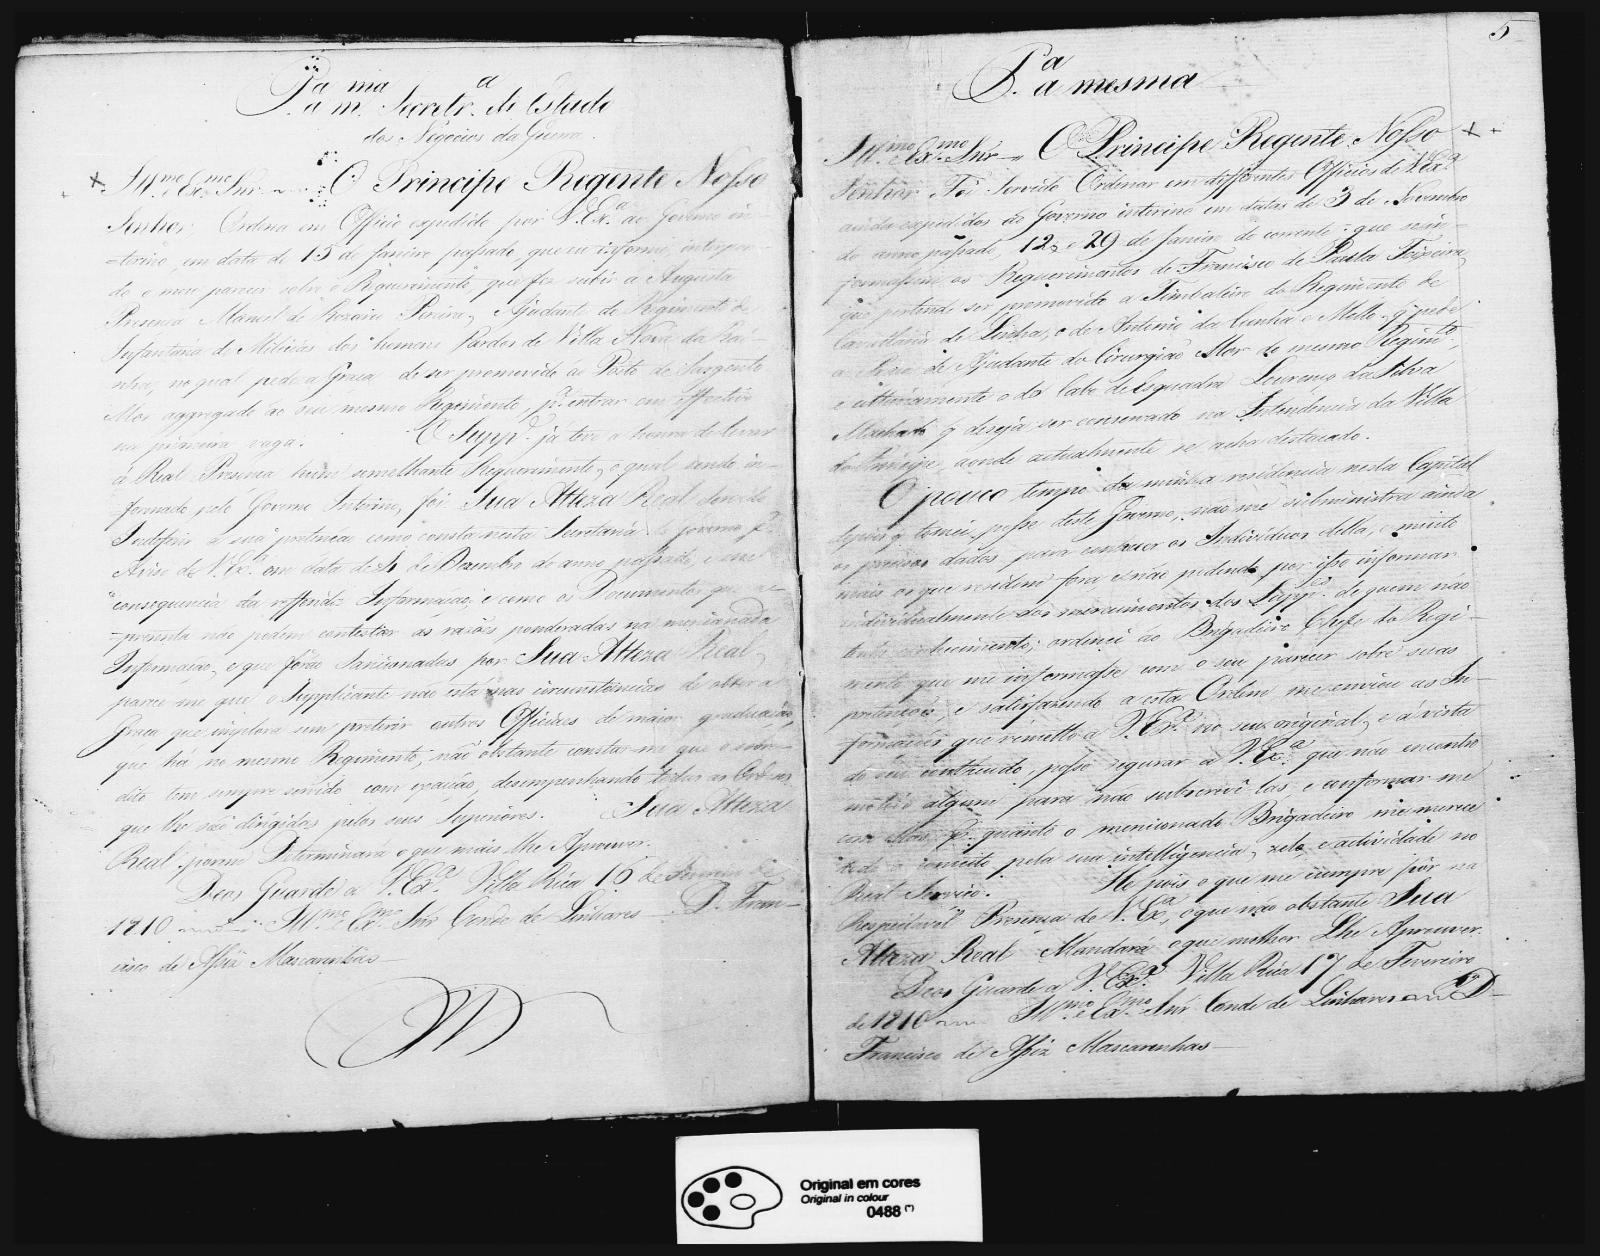 P.a a m.ma Secretr.a de Estado
dos Negocios da Guerra.
Ill.mo e Ex.mo Snr. O Principe Regente Nosso
Senhor, Ordena em Officio expedido por V. Ex.a ao Governo in-
-terino, em data de 15 de Janeiro passado, que eu informe, interpon-
do o meu parecer sobre o Requerimento, que fez subir a Augusta
Presença Manoel do Rozario Pereira, Ajudante do Regimento de
Infantaria de Milicias dos homens Pardos de Villa Nova da Rai-
nha, no qual pede a Graça de ser promovido ao Posto de Sargento
Mor aggregado ao seu mesmo Regimento, p.a entrar em effectivo
na primeira vaga. O Supp.e já teve a honra de levar
á Real Presença hum semelhante Requerimento, o qual sendo in-
formado pelo Governo Interino, foi Sua Alteza Real servido
Indeferir a sua pretenção como consta nesta Secretaria do governo p.r
Aviso de V. Ex.a em data de 4 de Dezembro do anno passado, e em
consequencia da refferida Informação; e como os Documentos que a-
-presenta não podem contestar as razões ponderadas na mencionada
Informação, e que forão Sanccionadas por Sua Alteza Real,
parece-me que o Supplicante não está nas circunstancias de obter a
Graça que implora sem preterir outros Officiaes de maior graduação,
que há no mesmo Regimento, não obstante constar-me que o sobre-
dito tem sempre servido com exacção, desempenhando todas as Ordens
que lhe são dirigidas pelos seus Superiores. Sua Alteza
Real porem Determinará o que mais lhe Aprouver.
Deos Guarde a V. Ex.a Villa Rica 16 de Fevereiro de
1810 Ill.mo e Ex.mo Snr Conde de Linhares D. Fran-
cisco de Assiz Mascarenhas
5
P.a a mesma
Ill.mo e Ex.mo Snr O Principe Regente Nosso
Senhor Foi Servido Ordenar em differentes Officios de V. Ex.a
ainda expedidos ao Governo interino em datas de 3 de Novembro
do anno passado, 12, e 29 de Janeiro do corrente: que se in-
formassem os Requerimentos de Francisco de Paula Teixeira,
que pertende ser promovido a Timbaleiro do Regimento de
Cavallaria de Linha, e de Antonio da Cunha e Mello q' pede
de Ajudante do Cirurgião Mor do mesmo Regim.to,
e ultimamente o do Cabo de Esquadra Lourenço da Silva
Machado q' deseja ser conservado na Intendencia da Villa
do Principe, aonde actualmente se acha destacado.
O pouco tempo da minha residencia nesta Capital
depois q' tomei posse deste Governo, não me subministra ainda
os precisos dados para conhecer os Individuos della, e muito
mais os que residem fora e não podendo por isso informar
individualmente dos merecimentos dos Supp.es de quem não
tenho conhecimento; ordenei ao Brigadeiro Chefe do Regi-
mento que me informasse com o seu parecer sobre suas
pretenções, e satisfazendo a esta Ordem me enviou as In-
formações que remetto a V. Ex.a no seu original, e á vista
do seu contheudo, posso segurar a V. Ex.a que não encontro
motivo algum para não subscrevê-las, e conformar me
com p.r quanto o mencionado Brigadeiro me merece
todo o conceito pela sua intelligencia, zelo, e actividade no
Real Serviço. He pois o que me cumpre pôr na
Respeitavel Presença de V. Ex.a, o que não obstante Sua
Alteza Real Mandará o que melhor Lhe Aprouver.
Deos Guarde a V. Ex.a Villa Rica 17 de Fevereiro
de 1810 Ill.mo e Ex.mo Snr Conde de Linhares D
Francisco de Assiz Mascarenhas
Original em cores
Original in colour
0488 (*)